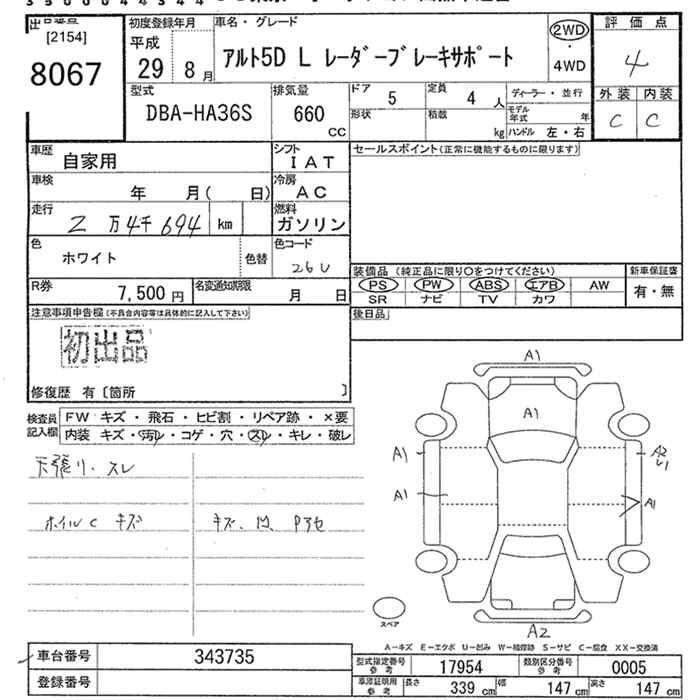 [2154]
8067
初度登録年月
平成
29 8月
車名・グレード
アルト5D L レーダーブレーキサポート
2WD
・
4WD
評価点
4
外装 内装
C C
型式
DBA-HA36S
排気量
660
CC
ドア 5
定員 4人
形状
積載 kg
ディーラー・並行
モデル年式 年
ハンドル 左・右
車歴
自家用
シフト
IAT
車検
年 月( 日)
冷房
AC
走行
2万4千694 km
燃料
ガソリン
色
ホワイト
色替
色コード
26U
R券
7,500円
名変通知期限
月 日
セールスポイント(正常に機能するものに限ります)
装備品(純正品に限り○をつけてください)
PS PW ABS エアB AW
SR ナビ TV カワ
新車保証書
有・無
後日品
注意事項申告欄(不具合内容等は具体的に記入して下さい)
初出品
修復歴 有〔箇所 〕
検査員記入欄
FW キズ・飛石・ヒビ割・リペア跡・×要
内装 キズ・汚レ・コゲ・穴・スレ・キレ・破レ
天張り・スレ
ホイルC キズ
キズ、凹、Pアセ
A1
A1
A1
A1
A2
U1
A1
A2
スペア
A-キズ E-エクボ U-凹み W-補修跡 S-サビ C-腐食 XX-交換済
車台番号 343735
登録番号
型式指定番号 参考 17954
類別区分番号 参考 0005
車庫証明用 参考 長さ 339cm 幅 147cm 高さ 147cm